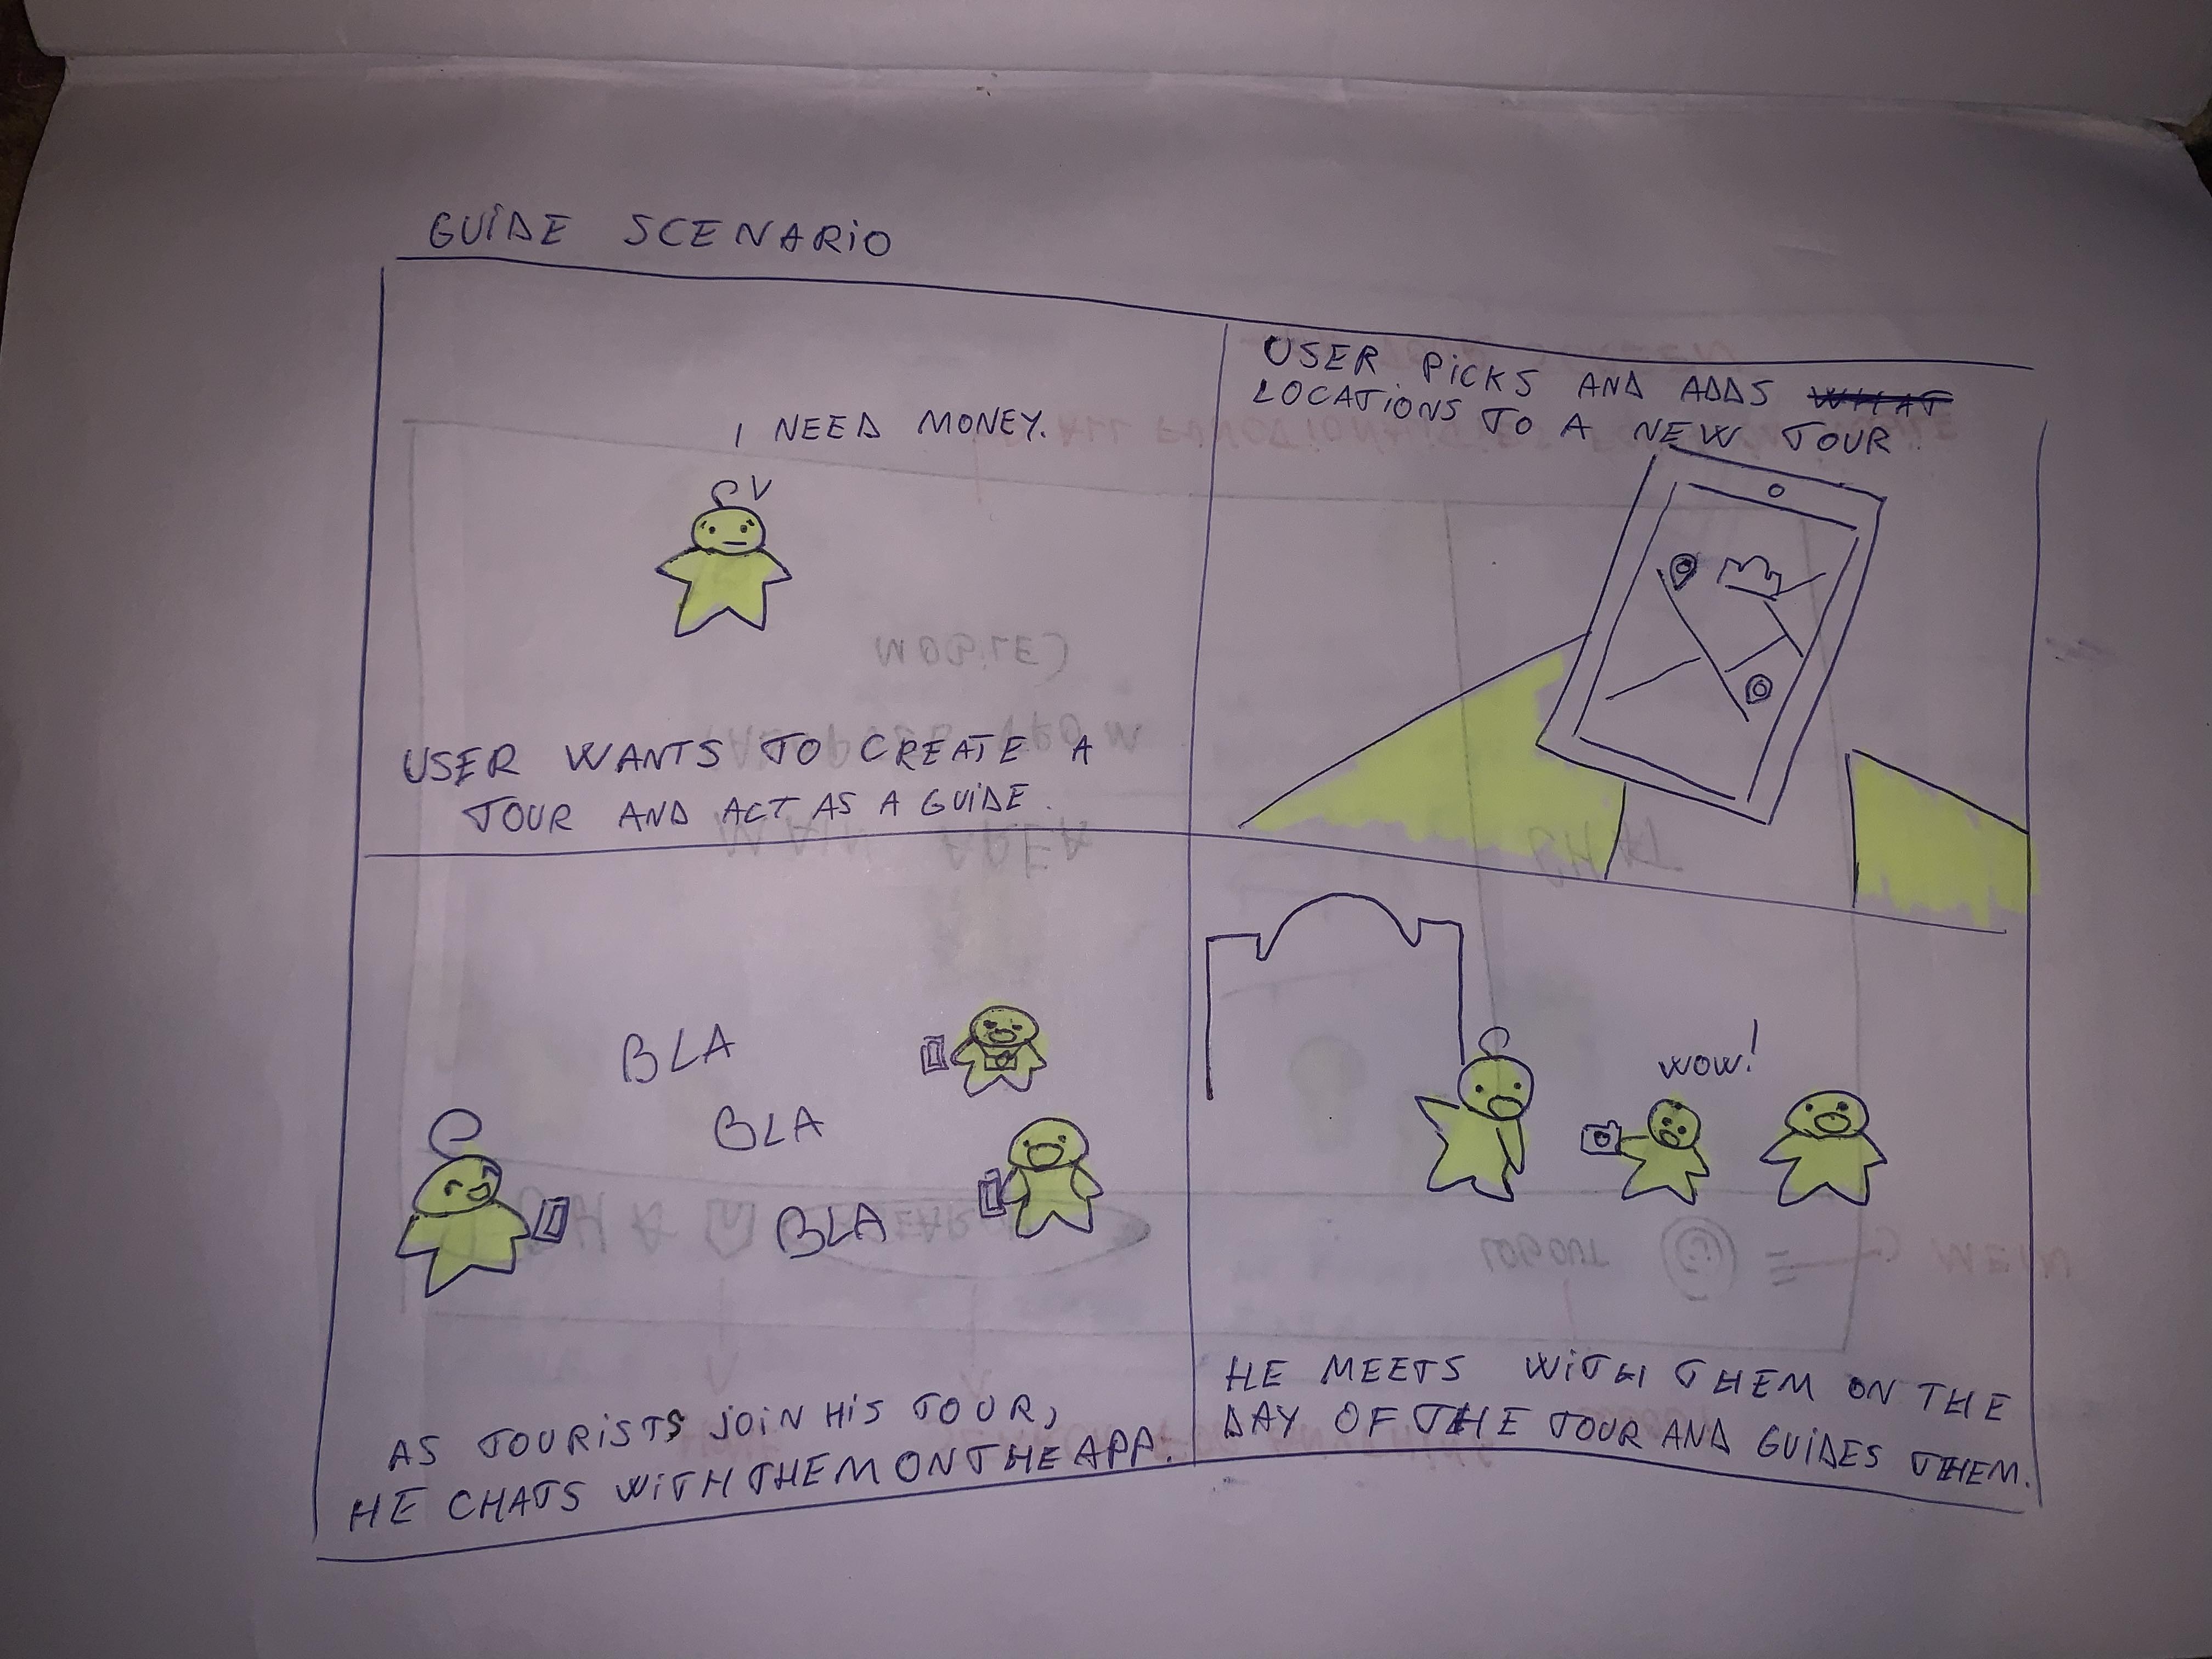 GUIDE SCENARIO
I NEED MONEY.
USER WANTS TO CREATE A
TOUR AND ACT AS A GUIDE.
USER PICKS AND ADDS WHAT
LOCATIONS TO A NEW TOUR.
BLA
BLA
BLA
AS TOURISTS JOIN HIS TOUR,
HE CHATS WITH THEM ON THE APP.
WOW!
HE MEETS WITH THEM ON THE
DAY OF THE TOUR AND GUIDES THEM.